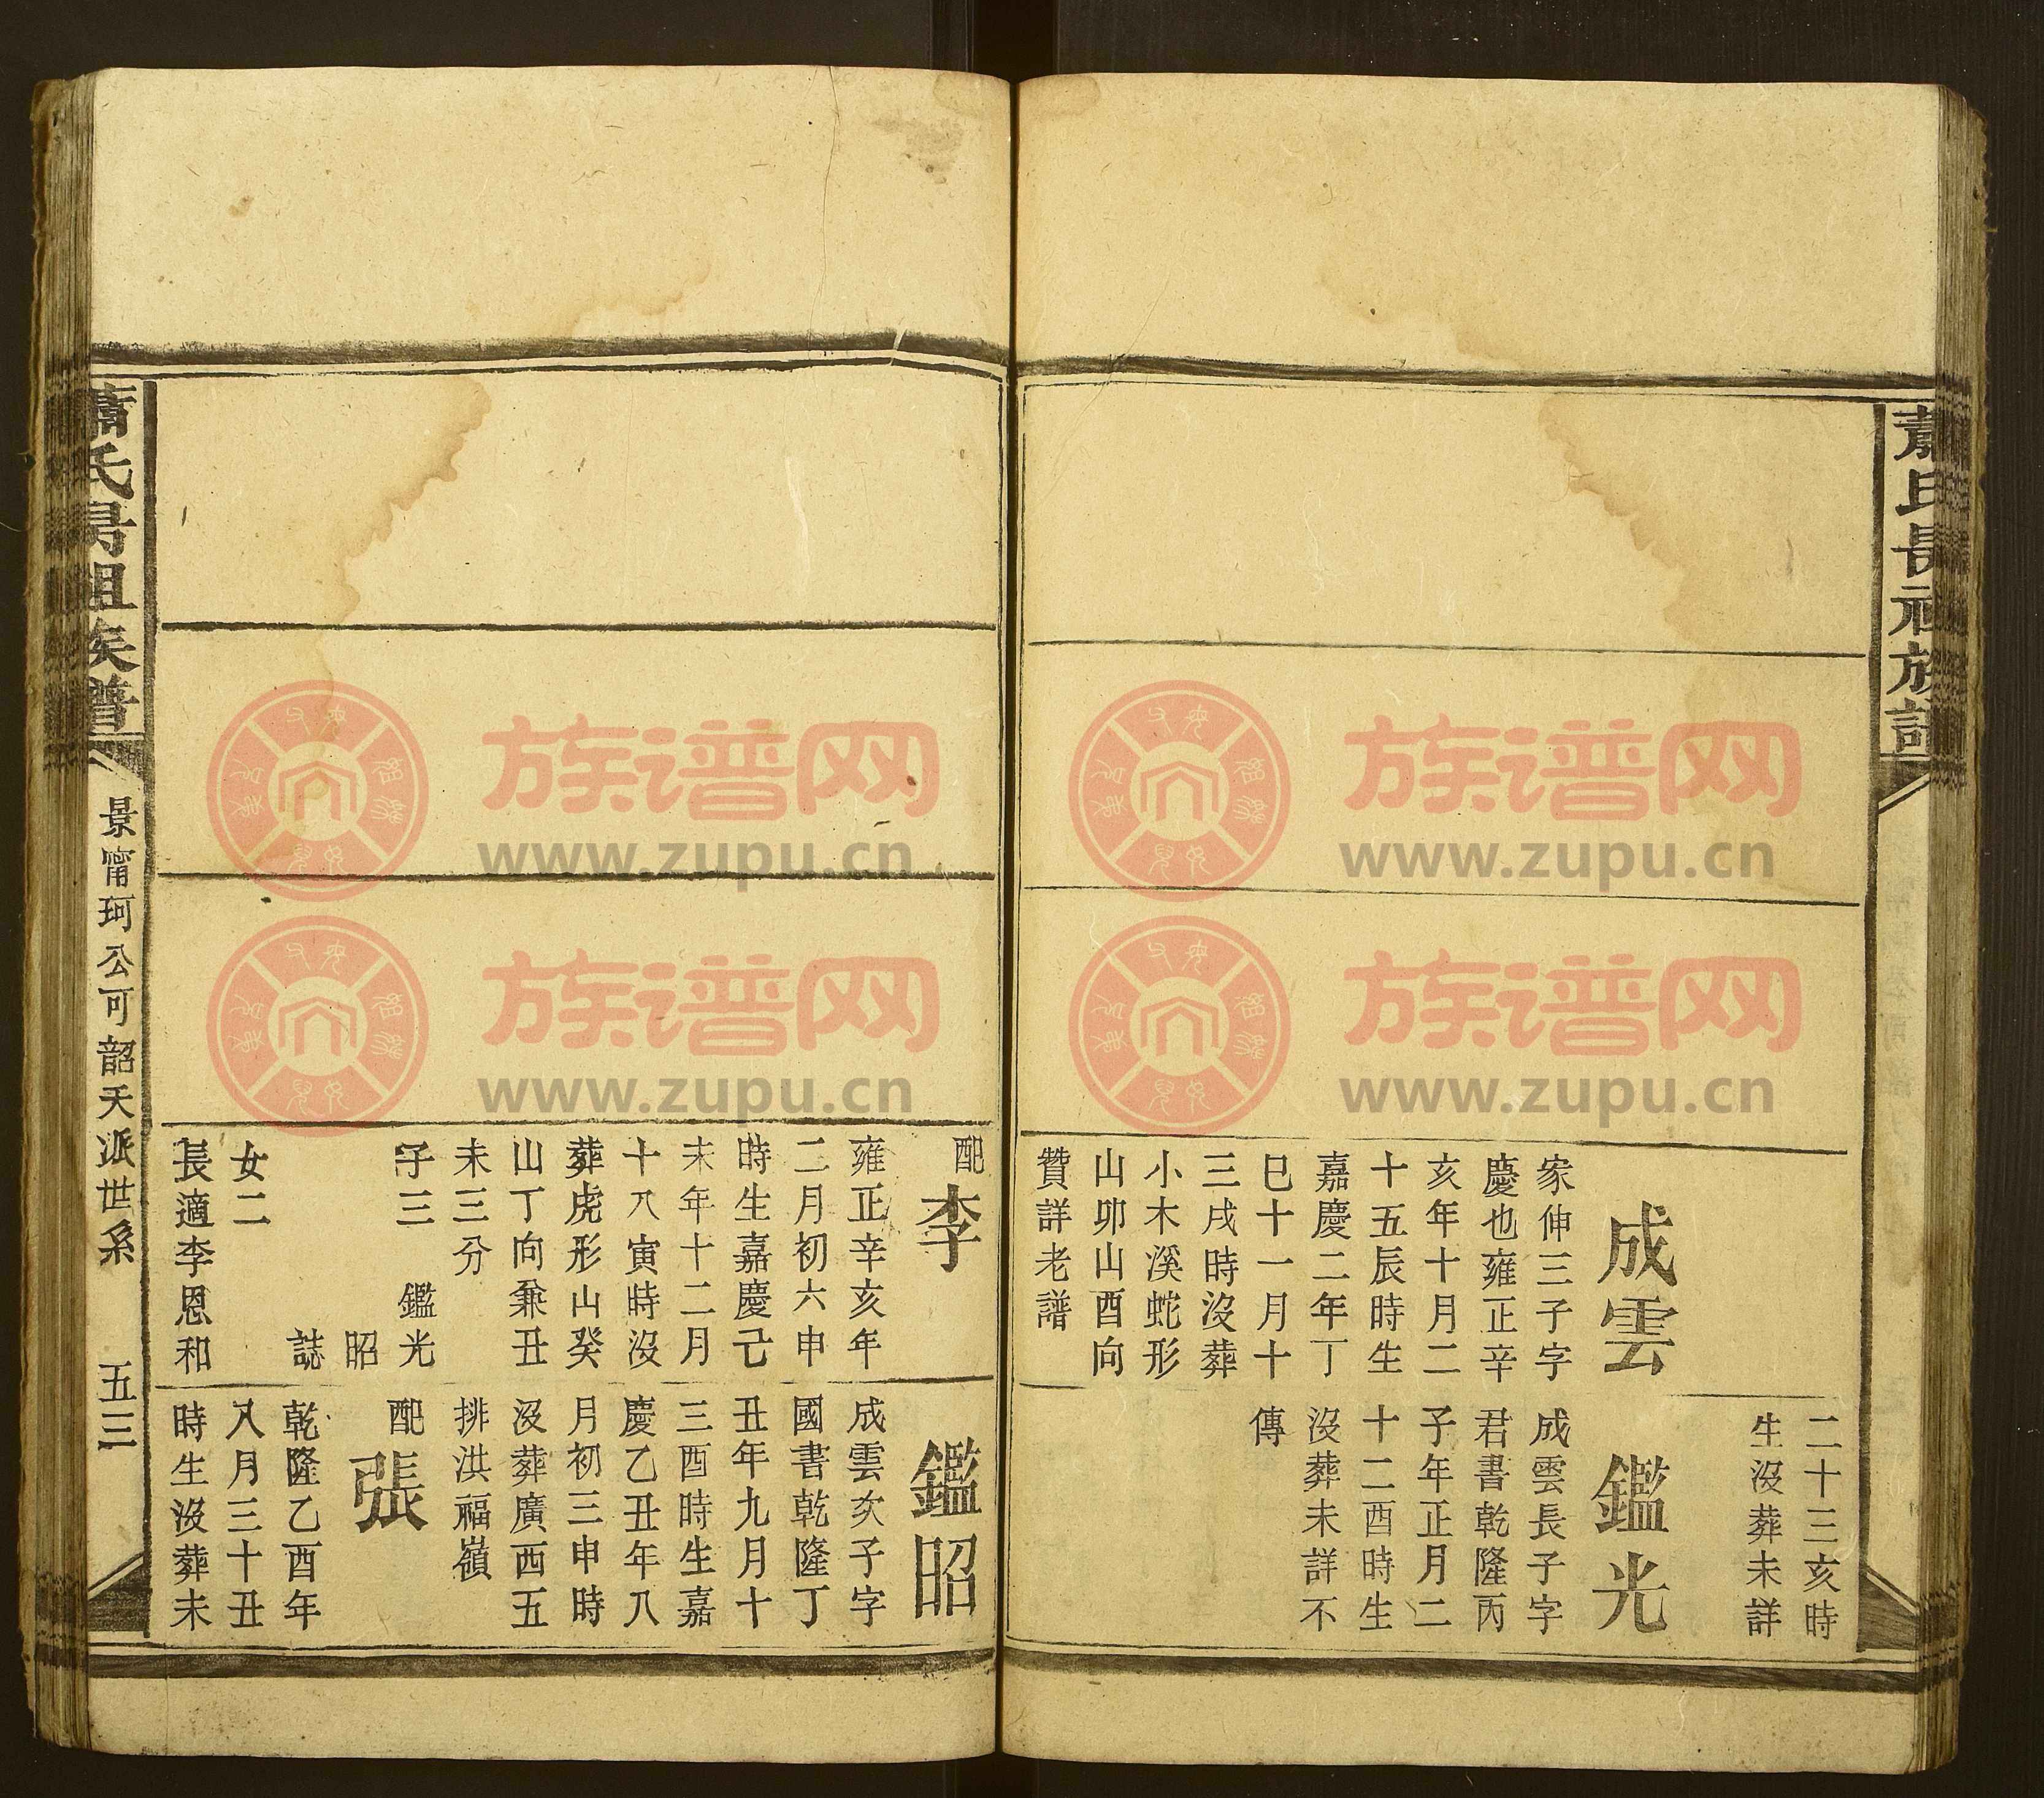 二十三亥時
生沒葬未詳
成雲
家伸三子字
慶也雍正辛
亥年十月二
十五辰時生
嘉慶二年丁
巳十一月十
三戌時沒葬
小木溪蛇形
山卯山酉向
贊詳老譜
鑑光
成雲長子字
君書乾隆丙
子年正月二
十二酉時生
沒葬未詳不
傳
配 李
雍正辛亥年
二月初六申
時生嘉慶己
未年十二月
十八寅時沒
葬虎形山癸
山丁向兼丑
未三分
子三 鑑光
昭
誌
女二
長適李恩和
鑑昭
成雲次子字
國書乾隆丁
丑年九月十
三酉時生嘉
慶乙丑年八
月初三申時
沒葬廣西五
排洪福嶺
配 張
乾隆乙酉年
八月三十丑
時生沒葬未
景甯珂公可韶天派世系 五三
族谱网
www.zupu.cn
族谱网
www.zupu.cn
族谱网
www.zupu.cn
族谱网
www.zupu.cn